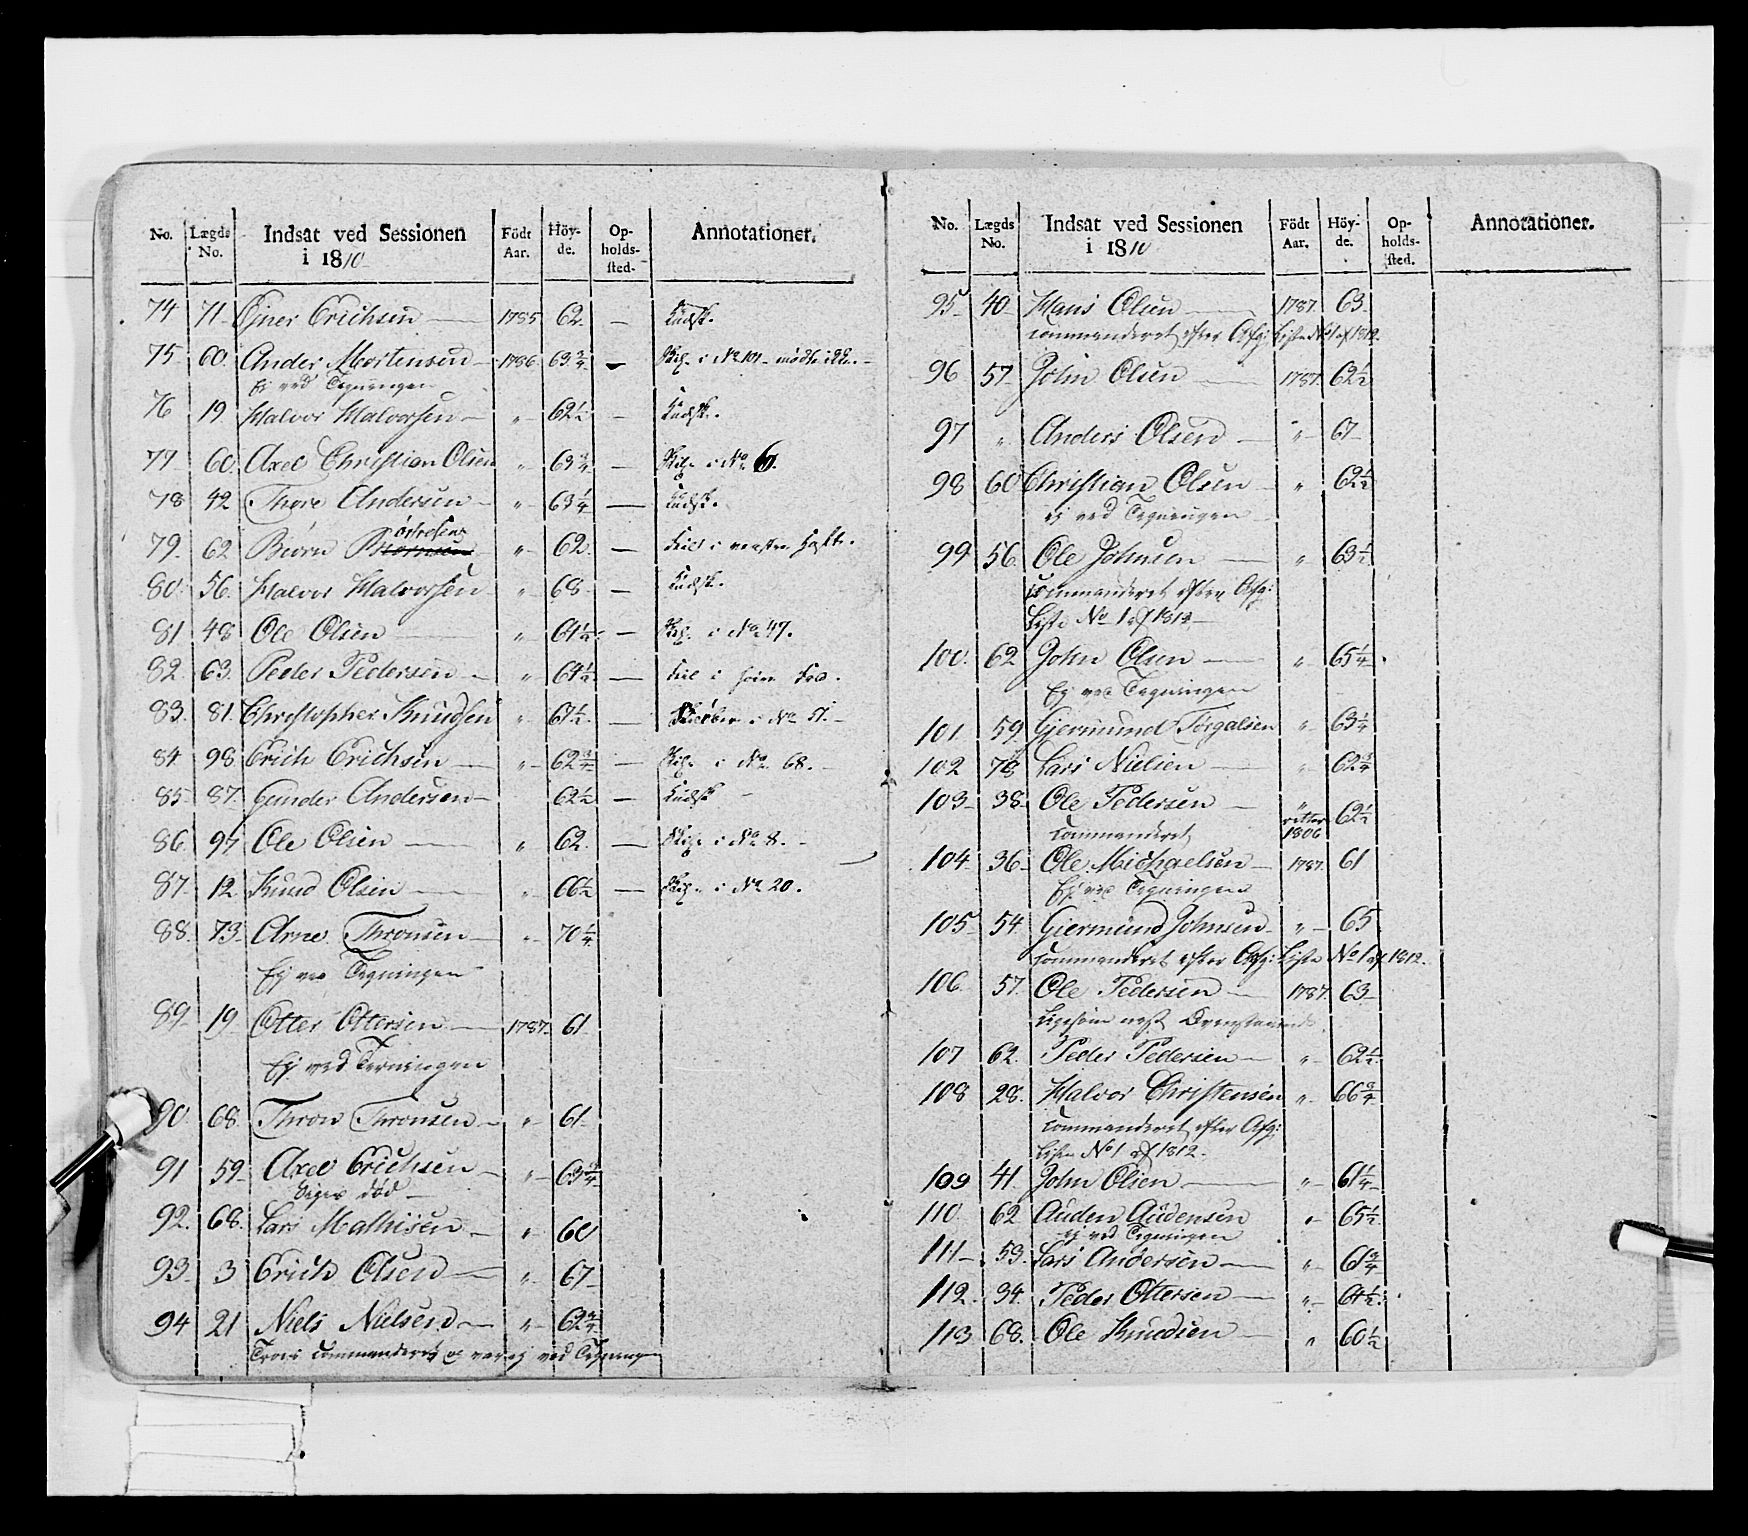 No. Lægds No. Indsat ved Sessionen i 1810 Födt Aar. Höy- de. Op- holds- sted. Annotationer.
74 71 Ejner Erichsen 1785 62 — Ludsk.
75 60 Ander Mortensen 1786 63 3/4 — i No 101 mødte ikke
Ej ved Tegningen
76 19 Halvor Halvorsen " 62 1/2 — Ludsk.
77 60 Axel Christian Olsen " 63 3/4 — i No 6.
78 42 Thore Andersen " 63 1/4 — Ludsk.
79 62 Biørn " 62 — Feil i venstre
80 56 Halvor Halvorsen " 68 — Ludsk.
81 48 Ole Olsen " 61 1/2 — i No 47.
82 63 Peder Pedersen " 64 1/2 — Feil i
83 81 Christopher Knudsen " 67 1/2 — i No 51.
84 98 Erich Erichsen " 62 3/4 — i No 68.
85 87 Gunder Andersen 62 1/2 — Ludsk
86 97 Ole Olsen " 62 — i No 8.
87 12 Knud Olsen " 66 1/2 — i No 20.
88 73 Arne Thronsen " 70 1/4
Ej ved Tegningen
89 19 Otter Ottersen 1787 61
Ej ved Tegningen
90 68 Thron Thronsen " 61
91 59 Axel Erichsen " 63 3/4
Siges død
92 68 Lars Mathisen " 60
93 3 Erich Olsen " 67
94 21 Niels Nielsen " 62 3/4
commanderet og var ej ved Tegningen
No. Lægds No. Indsat ved Sessionen i 1810 Födt Aar. Höy- de. Op- holds- sted. Annotationer.
95 40 Hans Olsen 1787 63
commanderet efter Afg: Liste No 1 af 1812.
96 57 John Olsen 1787 62 1/2
97 " Anders Olsen " 67
98 60 Christian Olsen " 62 1/2
ej ved Tegningen
99 56 Ole Johnsen " 63 1/2
commanderet efter Afg:
Liste No 1 af 1812
100 62 John Olsen " 65 1/4
Ej ved Tegningen
101 59 Giermund Torgalsen " 63 1/4
102 78 Lars Nielsen " 62 3/4
103 38 Ole Pedersen " 62 1/2
commanderet 1806
104 36 Ole Michaelsen 1787 61
Ej ved Tegningen
105 54 Giermund Johnsen " 65
commanderet efter Afg: Liste No 1 af 1812.
106 57 Ole Pedersen 1787 63
Ligesom næst Ovenstaaende
107 62 Peder Pedersen " 62 1/2
108 28 Halvor Christensen " 66 3/4
commanderet efter Afg:
Liste No 1 af 1812.
109 41 John Olsen " 61 1/4
110 62 Auden Audensen " 65 1/2
ej ved Tegningen
111 53 Lars Andersen " 61 3/4
112 34 Peder Ottersen " 64 1/2
113 68 Ole Knudsen " 60 1/2